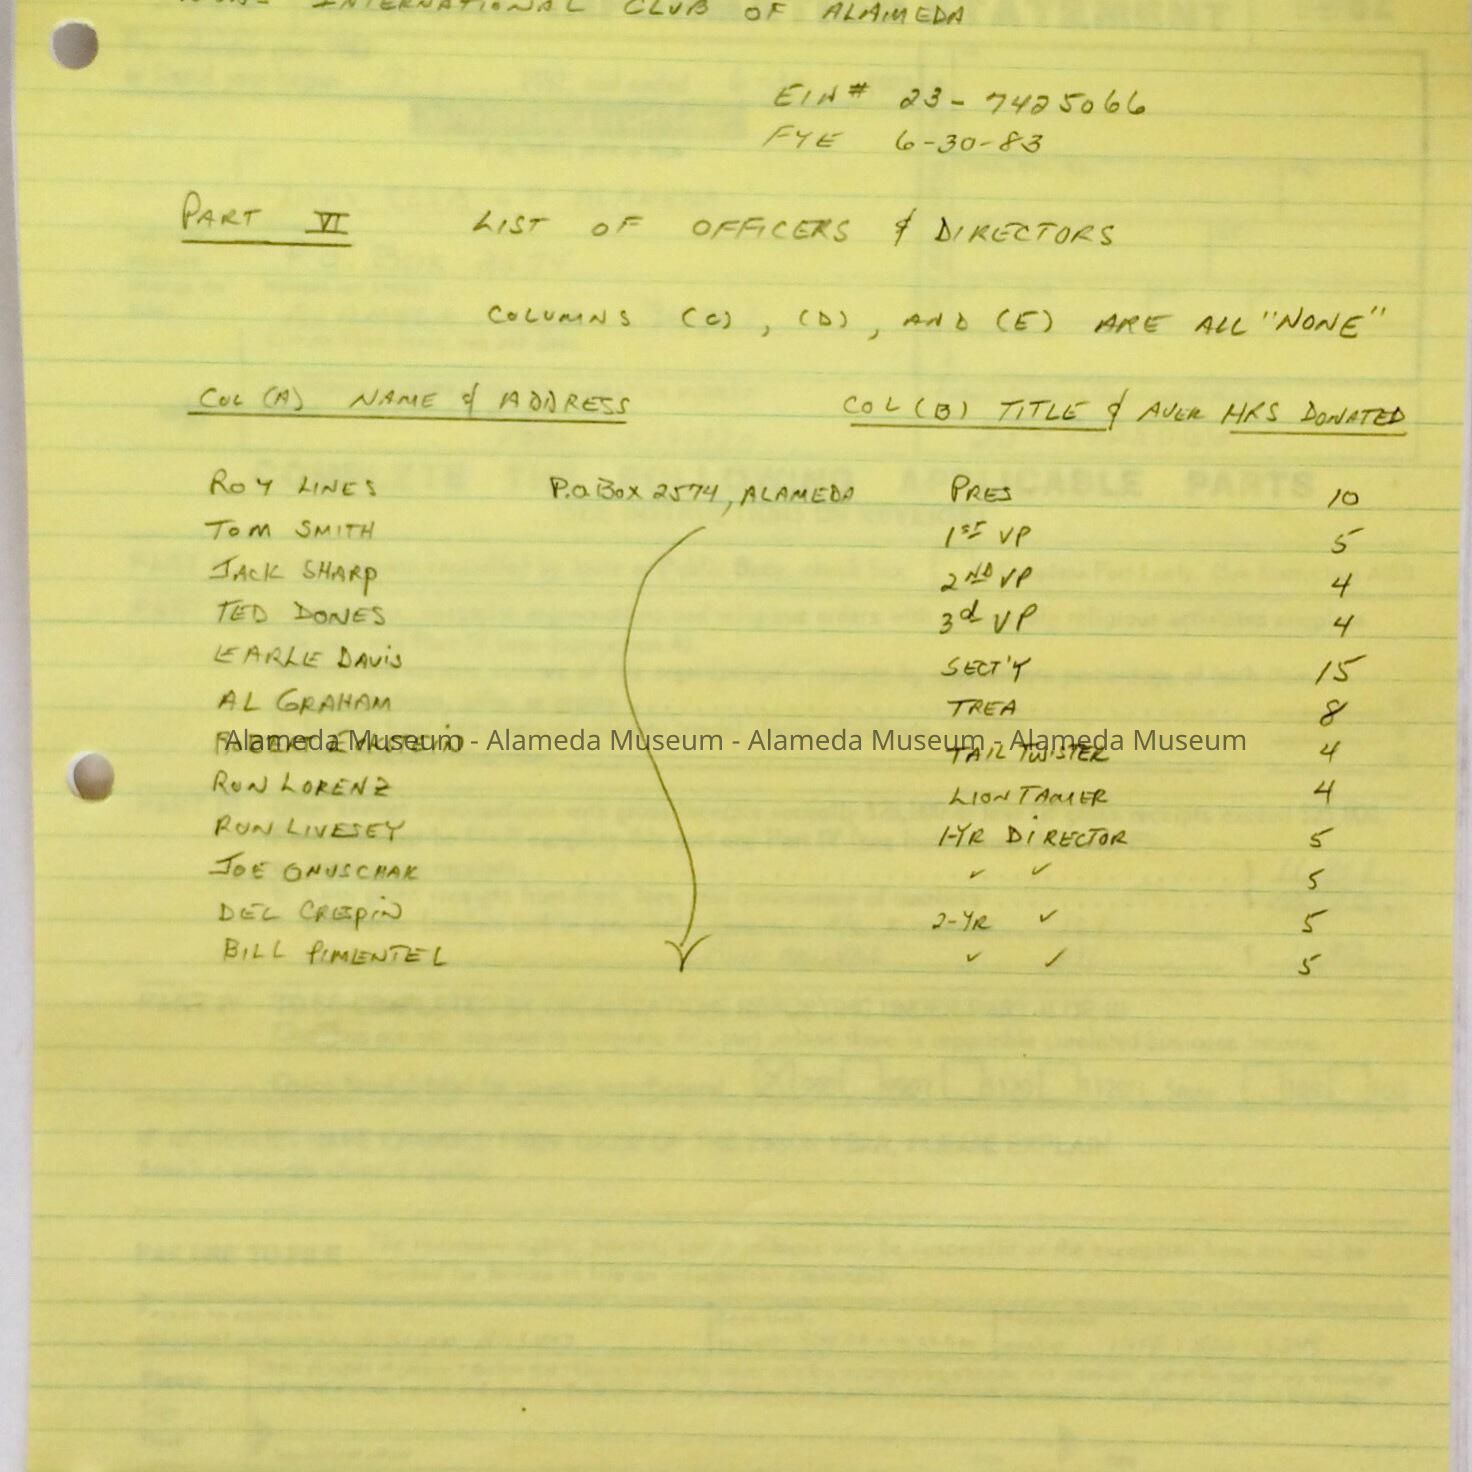 INTERNATIONAL CLUB OF ALAMEDA
EIN# 23-7425066
FYE 6-30-83
PART VI LIST OF OFFICERS & DIRECTORS
COLUMNS (C), (D), AND (E) ARE ALL "NONE"
COL (A) NAME & ADDRESS COL (B) TITLE & AVER HRS DONATED
ROY LINES P.O. BOX 2574, ALAMEDA PRES 10
TOM SMITH 1ST VP 5
JACK SHARP 2ND VP 4
TED DONES 3d VP 4
EARLE DAVIS SECT'Y 15
AL GRAHAM TREA 8
TAIL TWISTER 4
Alameda Museum - Alameda Museum - Alameda Museum - Alameda Museum
RON LORENZ LION TAMER 4
RON LIVESEY 1-YR DIRECTOR 5
JOE ONUSCHAK ✓ ✓ 5
DEL CRESPIN 2-YR ✓ 5
BILL PIMENTEL ✓ ✓ 5